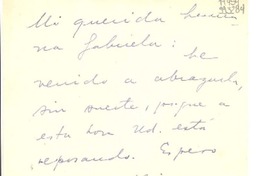 Mi querida herma
na Gabriela: he
venido a abrazarla,
sin suerte, porque a
esta hora Ud. está
reposando. Espero